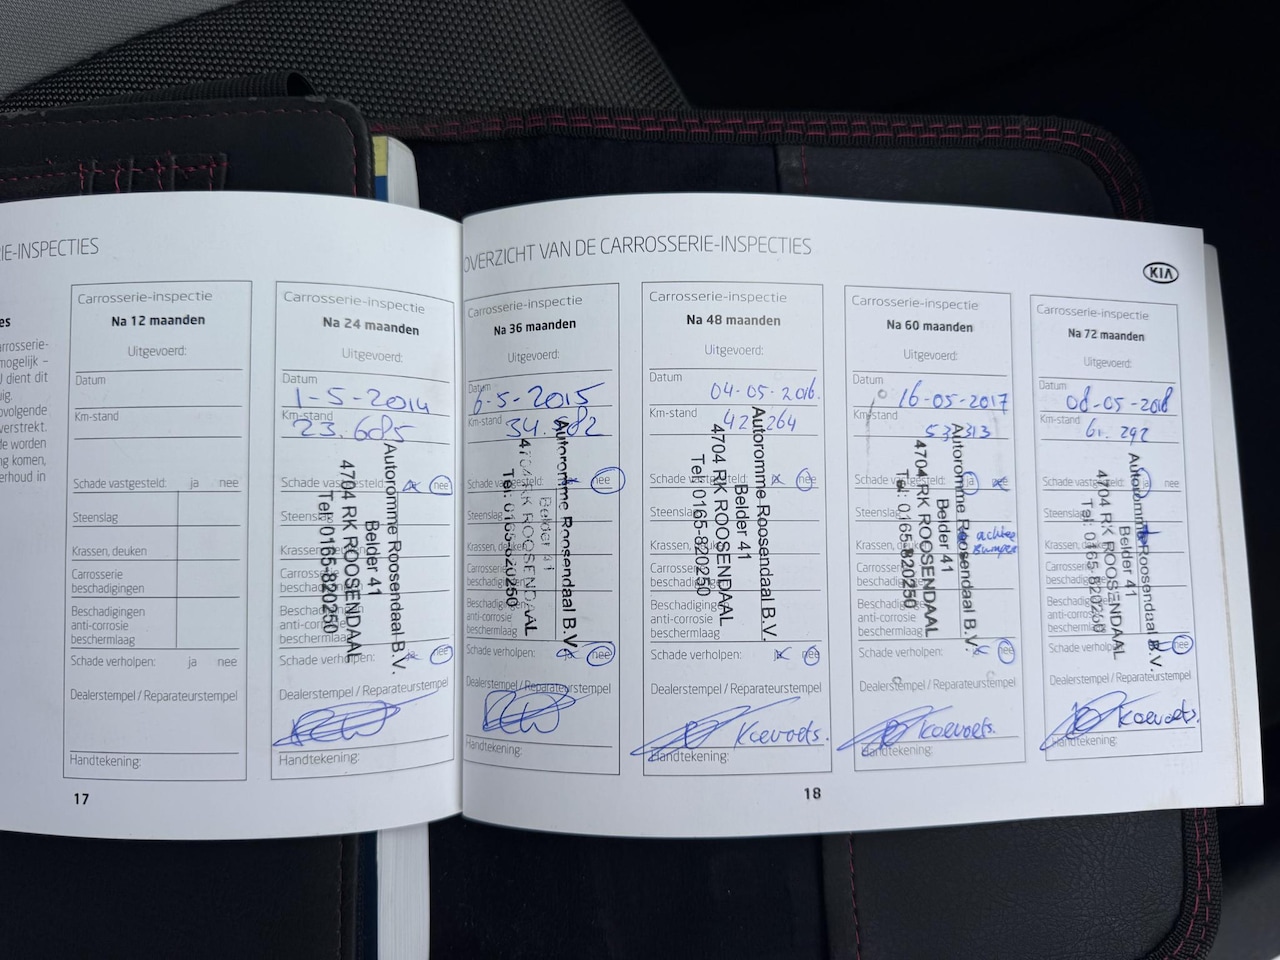 IE-INSPECTIES
es
arrosserie-
mogelijk –
U dient dit
uig.
ovolgende
verstrekt.
de worden
ng komen,
erhoud in
Carrosserie-inspectie
Na 12 maanden
Uitgevoerd:
Datum
Km-stand
Schade vastgesteld: ja nee
Steenslag
Krassen, deuken
Carrosserie
beschadigingen
Beschadigingen
anti-corrosie
beschermlaag
Schade verholpen: ja nee
Dealerstempel / Reparateurstempel
Handtekening:
17
Carrosserie-inspectie
Na 24 maanden
Uitgevoerd:
Datum
1-5-2014
Km-stand
23.685
Schade vastgesteld: nee
Steenslag
Krassen, deuken
Schade verholpen: nee
Dealerstempel / Reparateurstempel
Handtekening:
Autoromme Roosendaal B.V.
Belder 41
4704 RK ROOSENDAAL
Tel: 0165-820250
OVERZICHT VAN DE CARROSSERIE-INSPECTIES
KIA
Carrosserie-inspectie
Na 36 maanden
Uitgevoerd:
Datum
6-5-2015
Km-stand
Schade vastgesteld: nee
Steenslag
Carrosserie
beschadigingen
Beschadigingen
anti-corrosie
beschermlaag
Schade verholpen: nee
Dealerstempel / Reparateurstempel
Handtekening:
Autoromme Roosendaal B.V.
Belder 41
4704 RK ROOSENDAAL
Tel: 0165-820250
Carrosserie-inspectie
Na 48 maanden
Uitgevoerd:
Datum
04-05-2016.
Km-stand
42.264
Schade vastgesteld: nee
Steenslag
Krassen, deuken
Carrosserie
beschadigingen
Beschadigingen
anti-corrosie
beschermlaag
Schade verholpen: nee
Dealerstempel / Reparateurstempel
Koevoets.
Handtekening:
Autoromme Roosendaal B.V.
Belder 41
4704 RK ROOSENDAAL
Tel: 0165-820250
Carrosserie-inspectie
Na 60 maanden
Uitgevoerd:
Datum
16-05-2017
Km-stand
53.313
Schade vastgesteld: ja nee
Steenslag
Krassen, deuken
achter
Bumper
Carrosserie
beschadigingen
Beschadigingen
anti-corrosie
beschermlaag
Schade verholpen: nee
Dealerstempel / Reparateurstempel
Koevoets.
Handtekening:
Autoromme Roosendaal B.V.
Belder 41
4704 RK ROOSENDAAL
Tel: 0165-820250
Carrosserie-inspectie
Na 72 maanden
Uitgevoerd:
Datum
08-05-2018
Km-stand
61.292
Schade vastgesteld: ja nee
Steenslag
Krassen, deuken
Carrosserie
beschadigingen
Beschadigingen
anti-corrosie
beschermlaag
Schade verholpen: nee
Dealerstempel / Reparateurstempel
Koevoets.
Handtekening:
Autoromme Roosendaal B.V.
Belder 41
4704 RK ROOSENDAAL
Tel: 0165-820250
18